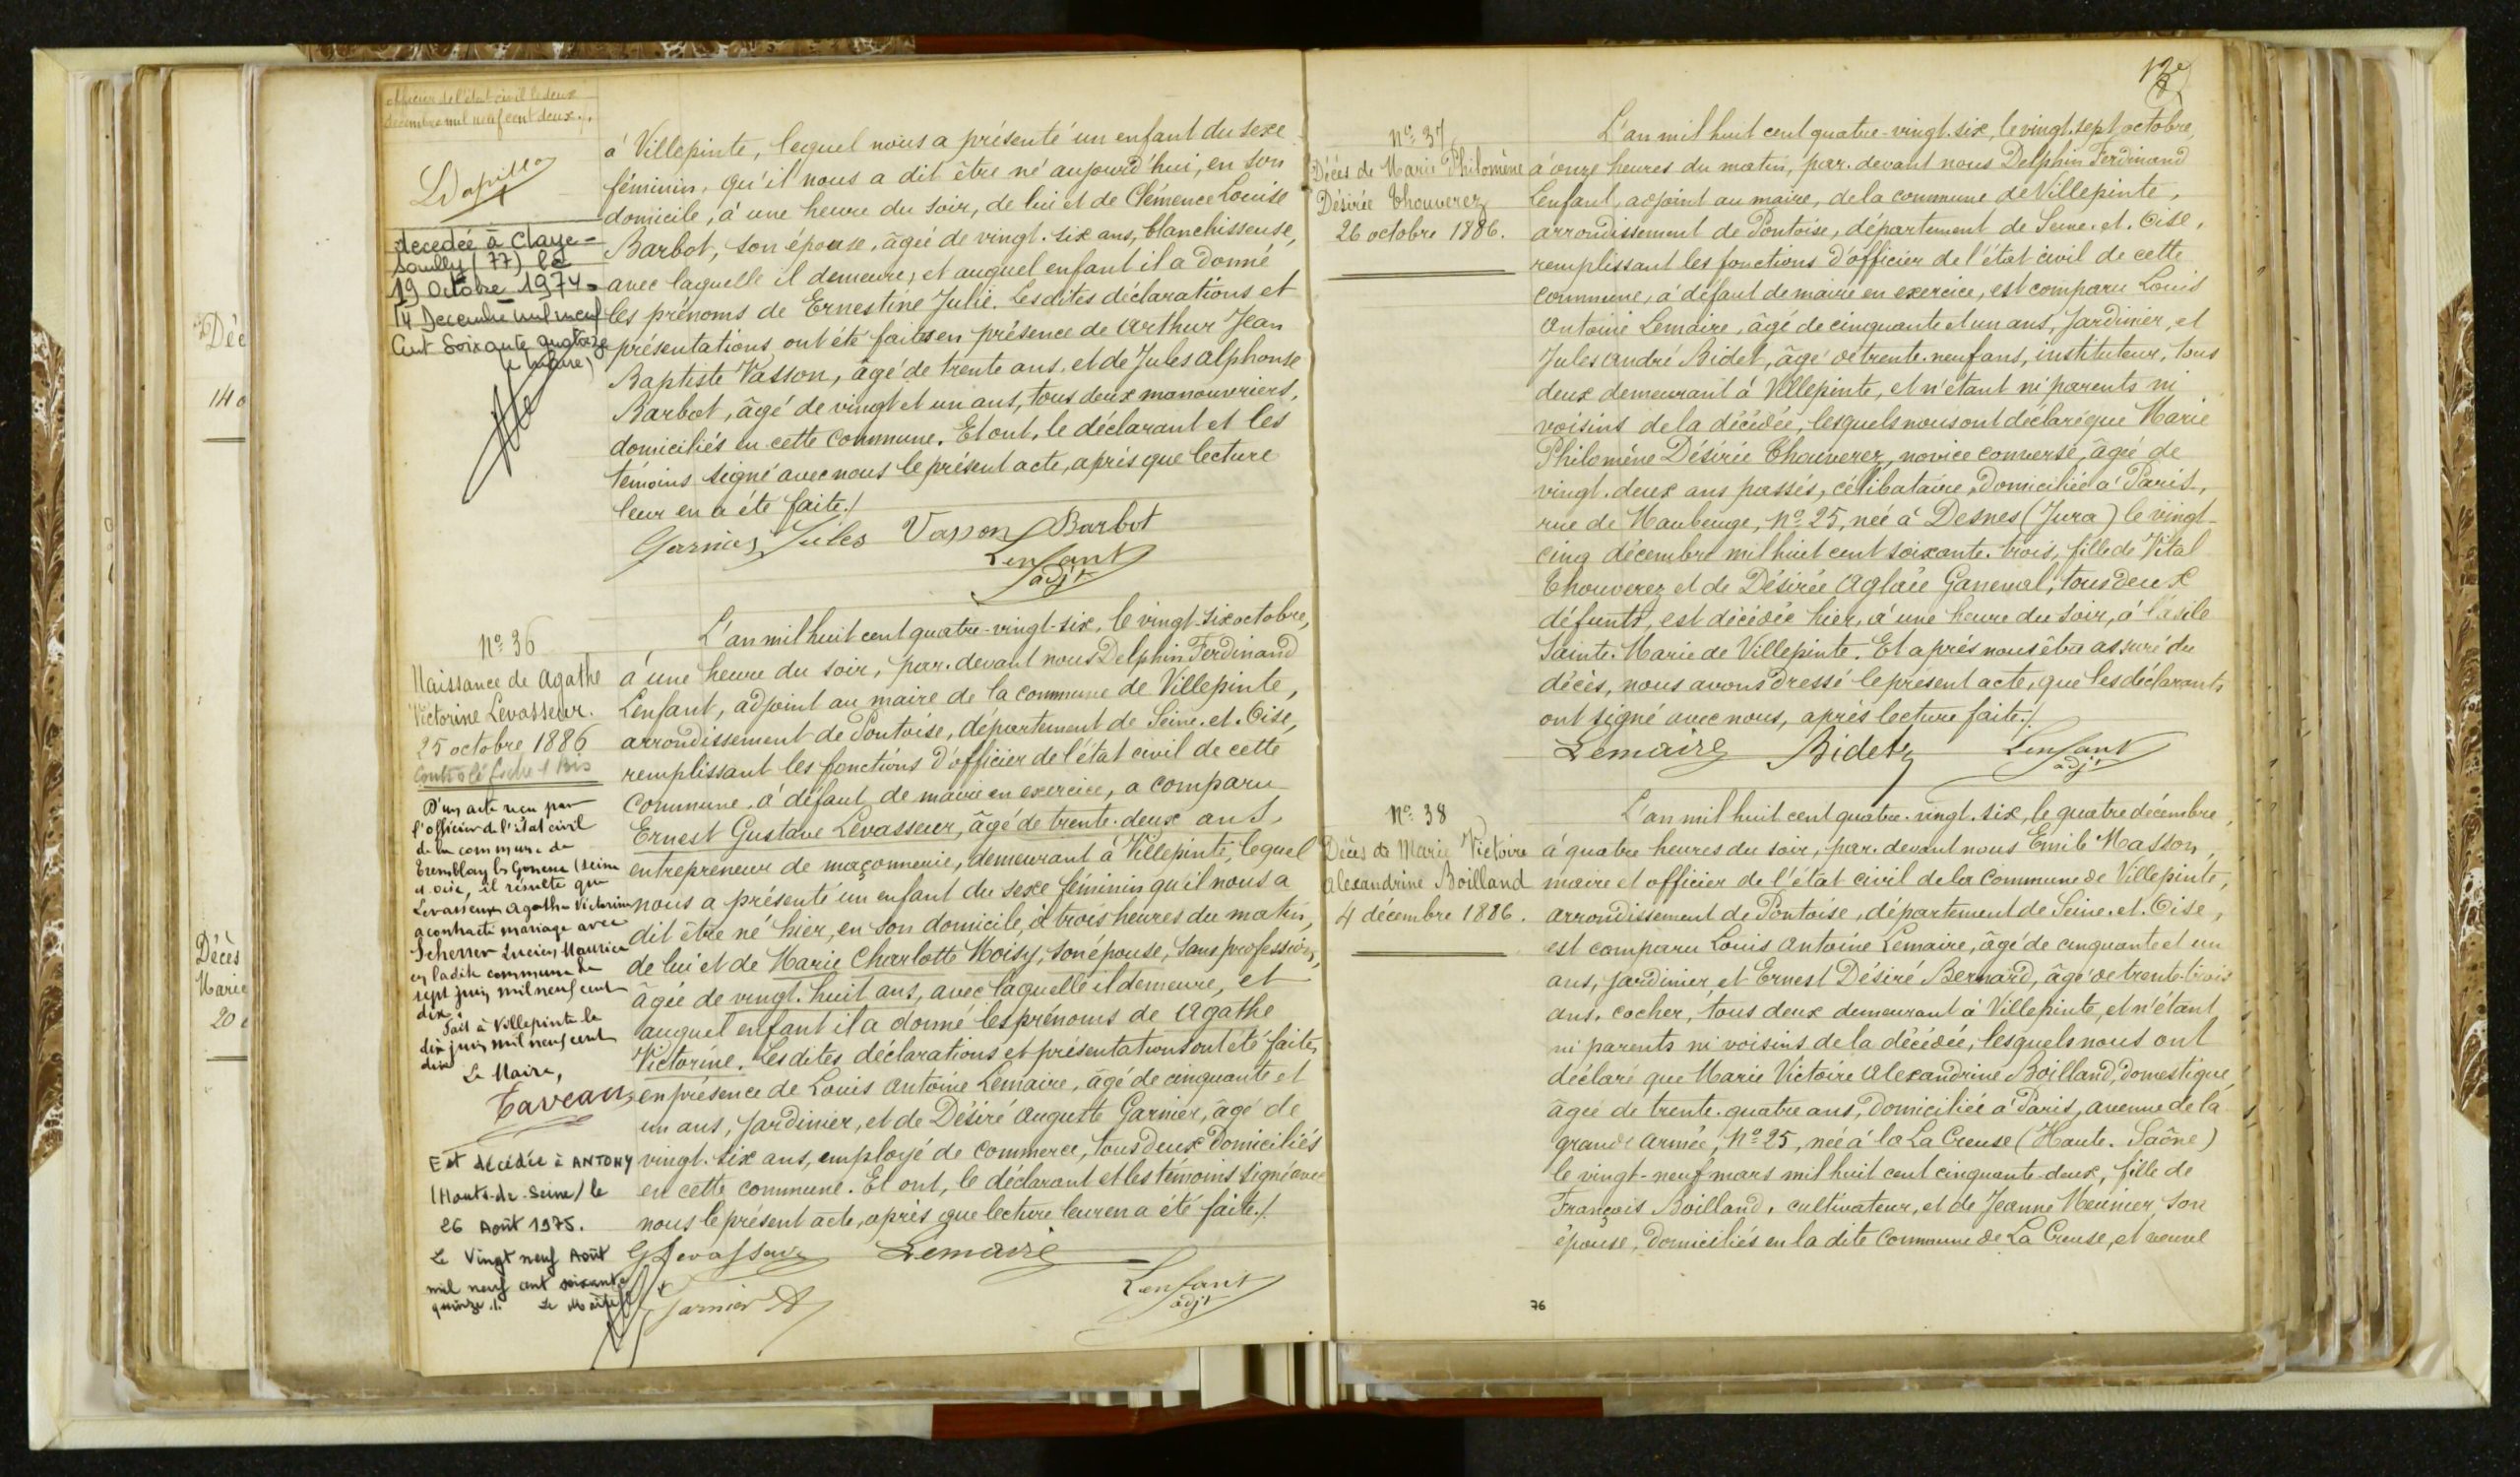 Déc
14 o
Décès
Marie
20
officier de l'état civil le deux
décembre mil neuf cent deux ./.
décédée à Claye-
Souilly (77) le
19 Octobre 1974.
14 Décembre mil neuf
Cent Soixante quatorze
à Villepinte, lequel nous a présenté un enfant du sexe
féminin, qu'il nous a dit être né aujourd'hui, en son
domicile, à une heure du soir, de lui et de Clémence Louise
Barbot, son épouse, âgée de vingt-six ans, blanchisseuse,
avec laquelle il demeure, et auquel enfant il a donné
les prénoms de Ernestine Julie. Lesdites déclarations et
présentations ont été faites en présence de Arthur Jean
Baptiste Vasson, âgé de trente ans, et de Jules Alphonse
Barbot, âgé de vingt et un ans, tous deux manouvriers,
domiciliés en cette commune. Et ont, le déclarant et les
témoins signé avec nous le présent acte, après que lecture
leur en a été faite ./
Garnier Jules Vasson Barbot
Lenfant
adjt
N° 36
Naissance de Agathe
Victorine Levasseur.
25 octobre 1886
Contrôlé fiche 1 Bis
D'un acte reçu par
l'officier de l'état civil
de la commune de
Tremblay les Gonesse (Seine
et oise, il résulte que
Levasseur Agathe Victorine
a contracté mariage avec
Scherrer Lucien Maurice
en ladite commune le
sept juin mil neuf cent
dix.
Fait à Villepinte le
dix juin mil neuf cent
dix
Le Maire,
Taveau
Est décédée à ANTONY
(Hauts-de-Seine) le
26 Août 1975.
Le Vingt neuf Août
mil neuf cent soixante
quinze ./. Le Maire
L'an mil huit cent quatre-vingt-six, le vingt-six octobre,
à une heure du soir, par-devant nous Delphin Ferdinand
Lenfant, adjoint au maire de la commune de Villepinte,
arrondissement de Pontoise, département de Seine-et-Oise,
remplissant les fonctions d'officier de l'état civil de cette
Commune, à défaut de maire en exercice, a comparu
Ernest Gustave Levasseur, âgé de trente-deux ans,
entrepreneur de maçonnerie, demeurant à Villepinte, lequel
nous a présenté un enfant du sexe féminin qu'il nous a
dit être né hier, en son domicile, à trois heures du matin,
de lui et de Marie Charlotte Moisy, son épouse, sans profession,
âgée de vingt-huit ans, avec laquelle il demeure, et
auquel enfant il a donné les prénoms de Agathe
Victorine. Lesdites déclarations et présentations ont été faites
en présence de Louis Antoine Lemaire, âgé de cinquante et
un ans, jardinier, et de Désiré Auguste Garnier, âgé de
vingt-six ans, employé de commerce, tous deux domiciliés
en cette commune. Et ont, le déclarant et les témoins signé avec
nous le présent acte, après que lecture leur en a été faite ./
G Levasseur Lemaire
Garnier A Lenfant
adjt
12e
N° 37
Décès de Marie Philomène
Désirée Thouverez
26 octobre 1886.
L'an mil huit cent quatre-vingt-six, le vingt-sept octobre,
à onze heures du matin, par-devant nous Delphin Ferdinand
Lenfant, adjoint au maire, de la commune de Villepinte,
arrondissement de Pontoise, département de Seine-et-Oise,
remplissant les fonctions d'officier de l'état civil de cette
commune, à défaut de maire en exercice, est comparu Louis
Antoine Lemaire, âgé de cinquante et un ans, jardinier, et
Jules André Bidet, âgé de trente-neuf ans, instituteur, tous
deux demeurant à Villepinte, et n'étant ni parents ni
voisins de la décédée, lesquels nous ont déclaré que Marie
Philomène Désirée Thouverez, novice converse, âgée de
vingt-deux ans passés, célibataire, domiciliée à Paris,
rue de Maubeuge, N° 25, née à Desnes (Jura) le vingt-
cinq décembre mil huit cent soixante-trois, fille de Vital
Thouverez et de Désirée Aglaée Ganeval, tous deux
défunts, est décédée hier, à une heure du soir, à l'asile
Sainte-Marie de Villepinte. Et après nous être assuré du
décès, nous avons dressé le présent acte, que les déclarants
ont signé avec nous, après lecture faite ./
Lemaire Bidet Lenfant
adjt
N° 38
Décès de Marie Victoire
Alexandrine Boilland
4 décembre 1886.
L'an mil huit cent quatre-vingt-six, le quatre décembre,
à quatre heures du soir, par-devant nous Emile Masson,
maire et officier de l'état civil de la commune de Villepinte,
arrondissement de Pontoise, département de Seine-et-Oise,
est comparu Louis Antoine Lemaire, âgé de cinquante et un
ans, jardinier, et Ernest Désiré Bernard, âgé de trente-trois
ans, cocher, tous deux demeurant à Villepinte, et n'étant
ni parents ni voisins de la décédée, lesquels nous ont
déclaré que Marie Victoire Alexandrine Boilland, domestique
âgée de trente-quatre ans, domiciliée à Paris, avenue de la
grande Armée, N° 25, née à la La Creuse (Haute-Saône)
le vingt-neuf mars mil huit cent cinquante-deux, fille de
François Boilland, cultivateur, et de Jeanne Meunier, son
épouse, domiciliés en la dite commune de La Creuse, et veuve
76